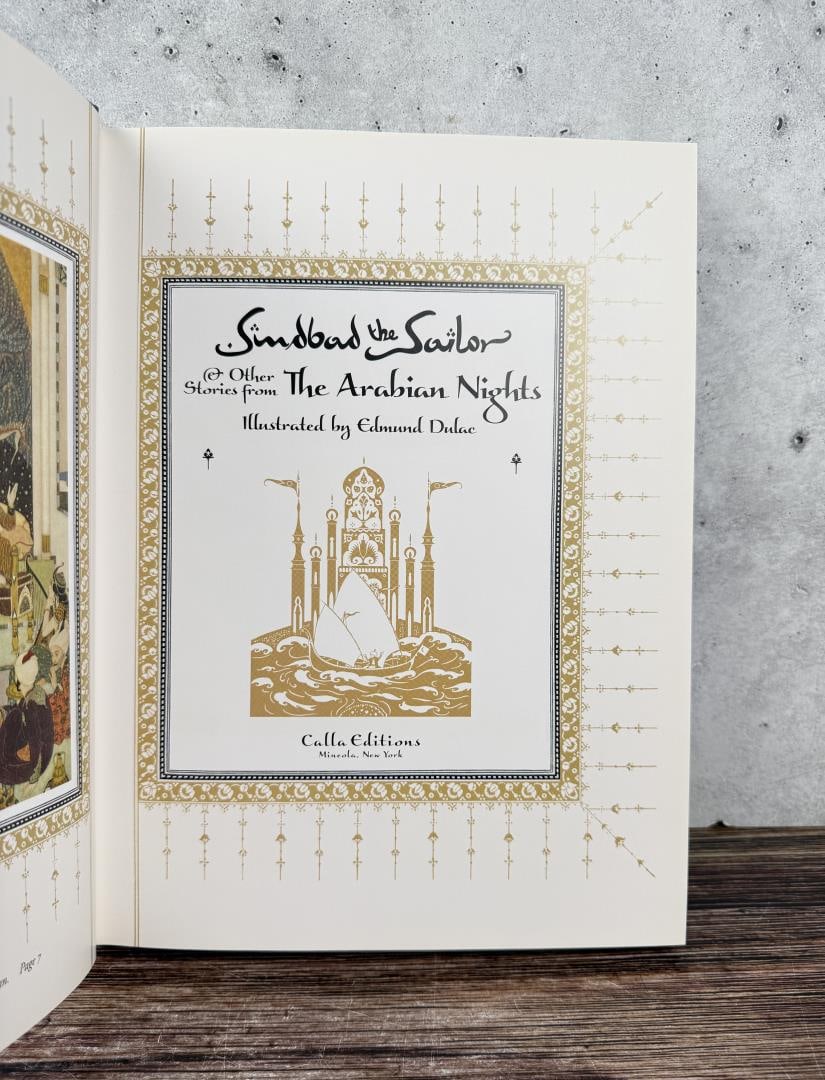 Sindbad the Sailor
& Other
Stories from The Arabian Nights
Illustrated by Edmund Dulac
Calla Editions
Mineola, New York
Page 7